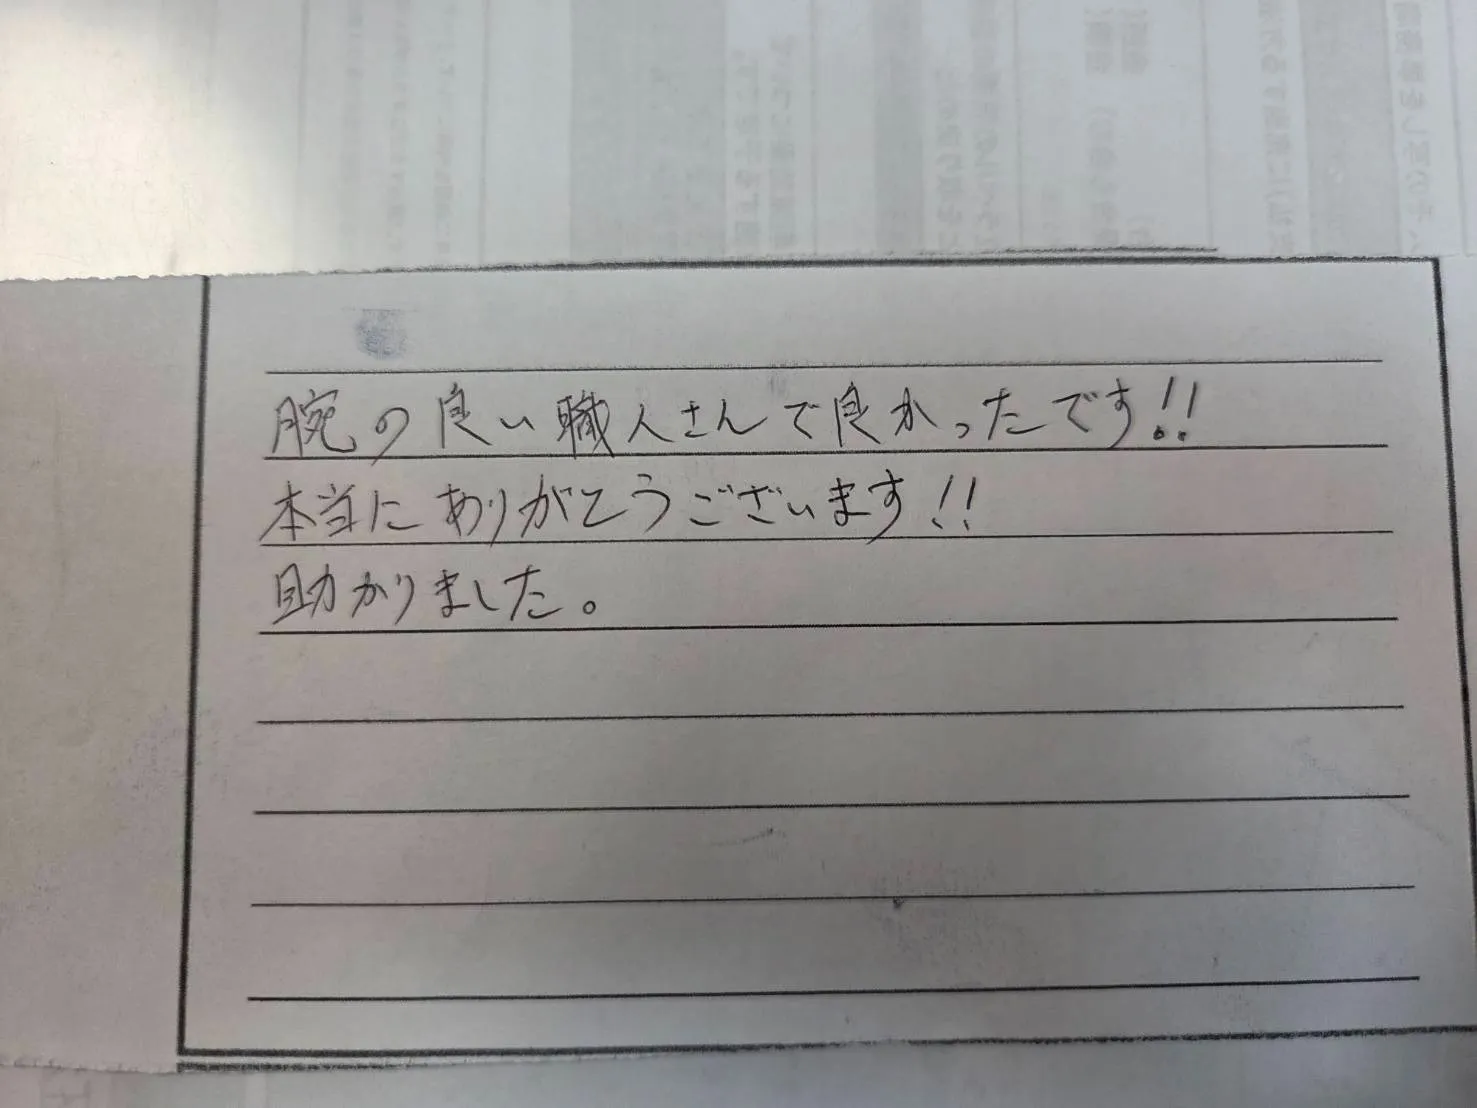 腕の良い職人さんで良かったです!!
本当にありがとうございます!!
助かりました。